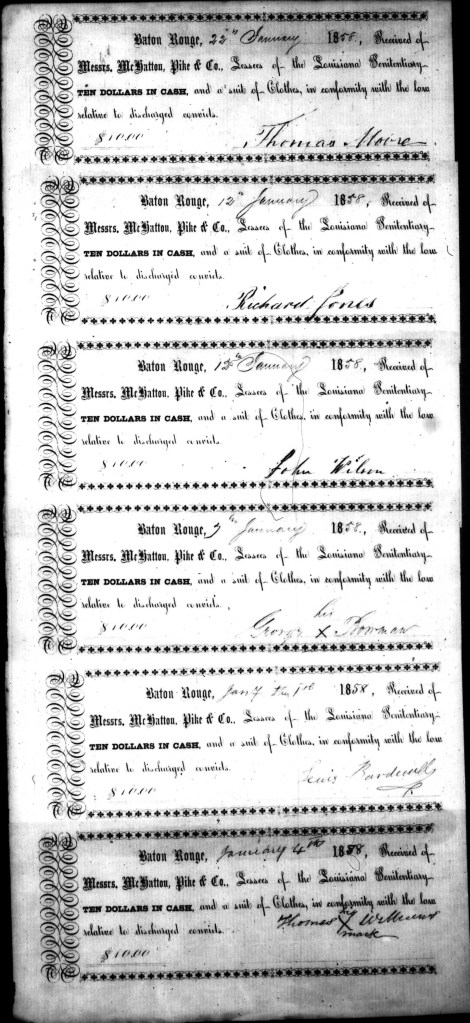 Baton Rouge, 22th January 1858, Received of
Messrs. McHatton, Pike & Co., Lessees of the Louisiana Penitentiary
TEN DOLLARS IN CASH, and a suit of Clothes, in conformity with the law
relative to discharged convicts.
$10.00
Thomas Moore
Baton Rouge, 12th January 1858, Received of
Messrs. McHatton, Pike & Co., Lessees of the Louisiana Penitentiary
TEN DOLLARS IN CASH, and a suit of Clothes, in conformity with the law
relative to discharged convicts.
$10.00
Richard Jones
Baton Rouge, 12th January 1858, Received of
Messrs. McHatton, Pike & Co., Lessees of the Louisiana Penitentiary
TEN DOLLARS IN CASH, and a suit of Clothes, in conformity with the law
relative to discharged convicts.
$10.00
John Wilson
Baton Rouge, January 1858, Received of
Messrs. McHatton, Pike & Co., Lessees of the Louisiana Penitentiary
TEN DOLLARS IN CASH, and a suit of Clothes, in conformity with the law
relative to discharged convicts.
his
$10.00
George X Bowman
Baton Rouge, Jany the 1st 1858, Received of
Messrs. McHatton, Pike & Co., Lessees of the Louisiana Penitentiary
TEN DOLLARS IN CASH, and a suit of Clothes, in conformity with the law
relative to discharged convicts.
$10.00
Baton Rouge, January 4th 1858, Received of
Messrs. McHatton, Pike & Co., Lessees of the Louisiana Penitentiary
TEN DOLLARS IN CASH, and a suit of Clothes, in conformity with the law
relative to discharged convicts.
Thomas X
mark
$10.00